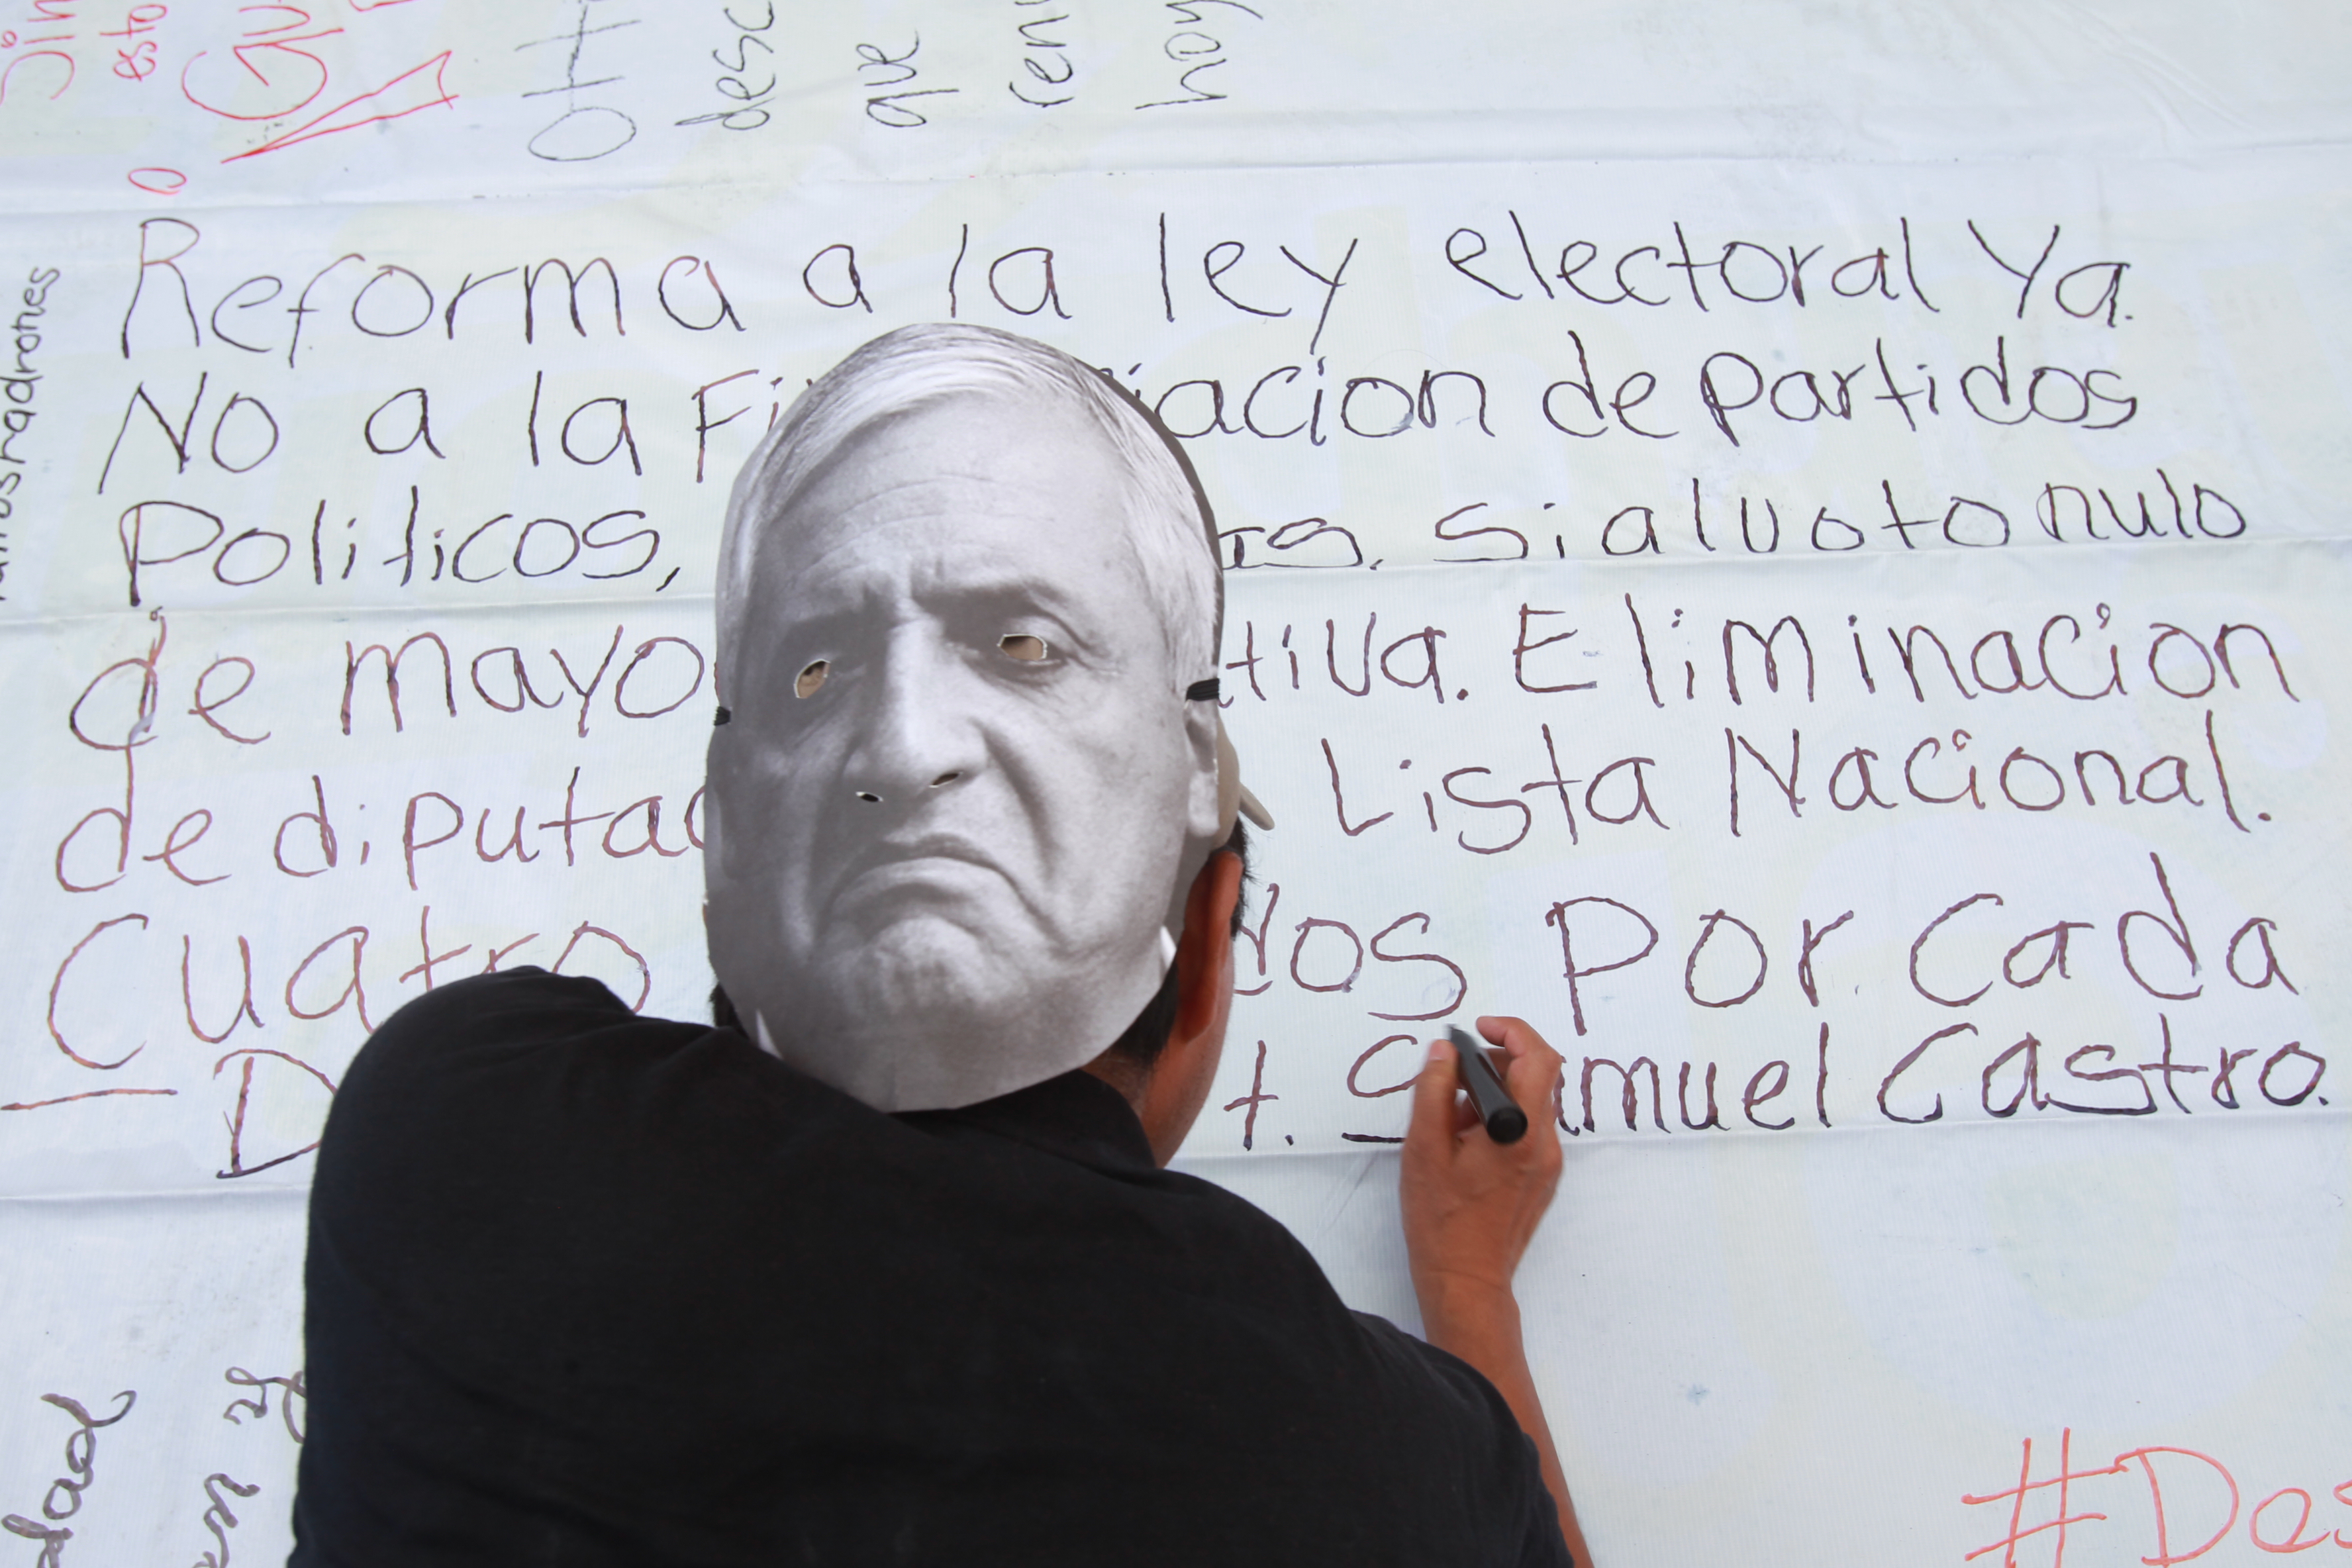 esto
OTTO
desc
que
ren
hoy
Reforma a la ley electoral Ya.
No a la Fi iacion de Partidos
Politicos, as. Si al voto nulo
de mayo tiva. Eliminacion
de diputad Lista Nacional.
Cuatro dos Por Cada
D t. Samuel Castro.
dad
en y
#Des